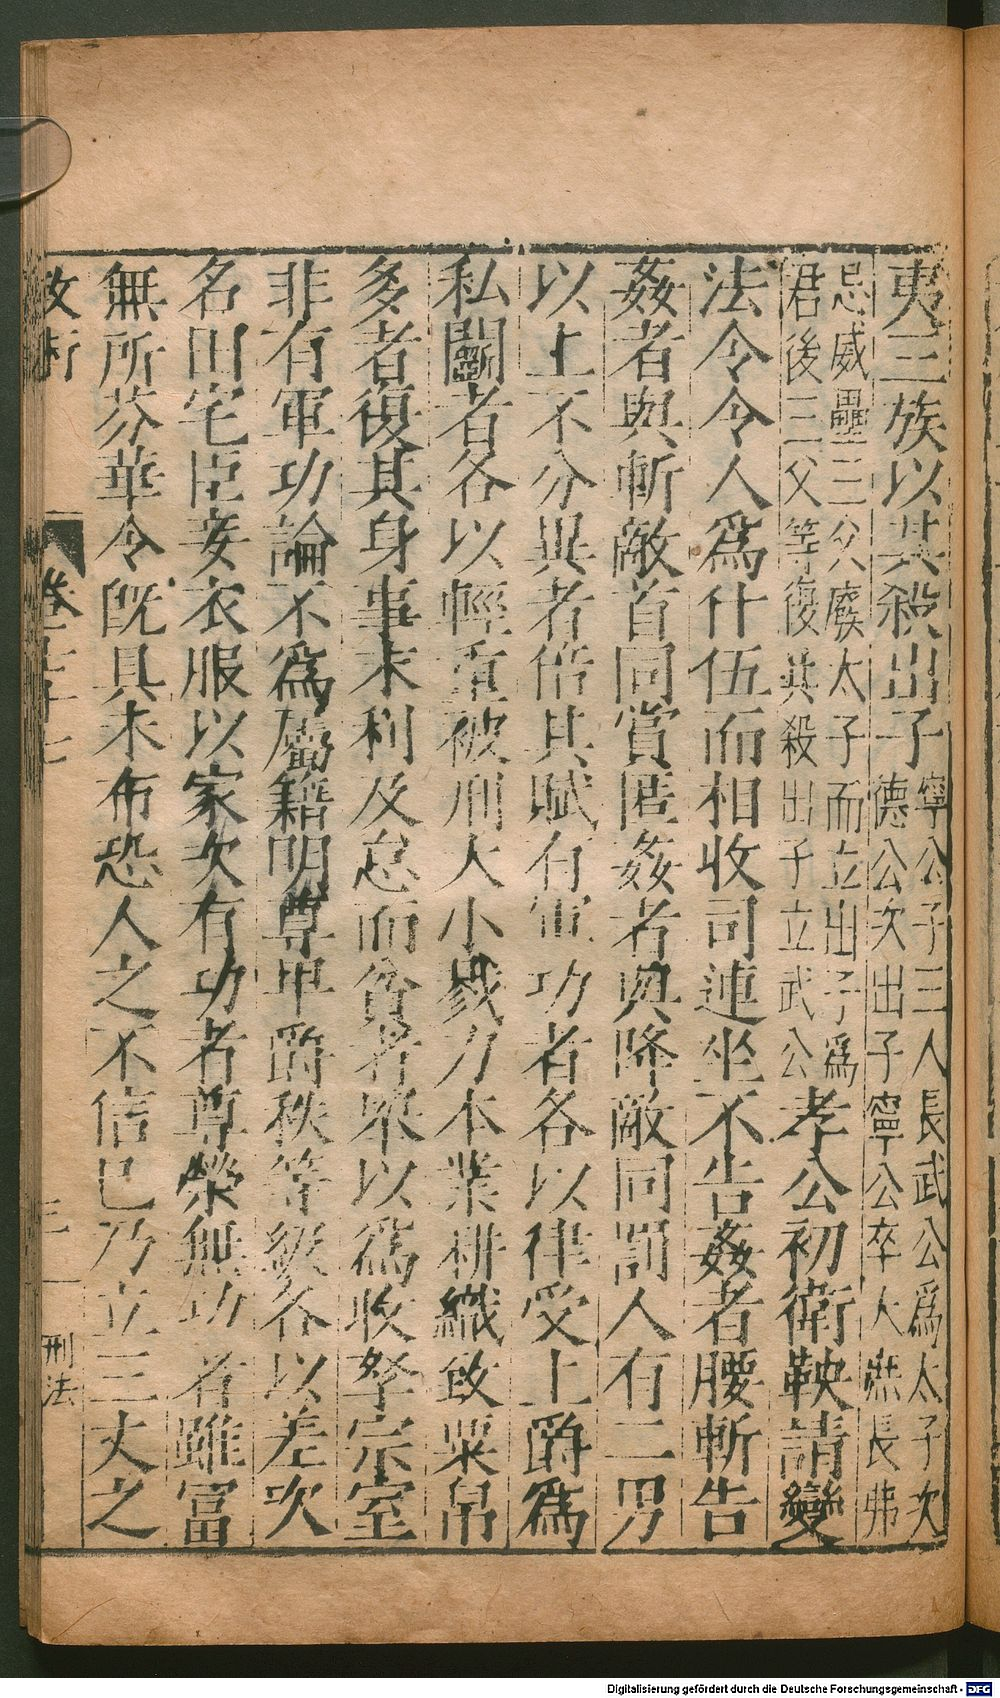 夷三族以其殺出子寧公子三人長武公爲太子次
德公次出子寧公卒大庶長弗
忌威壘三父廢太子而立出子爲
君後三父等復共殺出子立武公孝公初衛鞅請變
法令令人爲什伍而相收司連坐不告姦者腰斬告
姦者與斬敵首同賞匿姦者與降敵同罰人有二男
以上不分異者倍其賦有軍功者各以律受上爵爲
私鬭者各以輕重被刑大小戮力本業耕織致粟帛
多者復其身事末利及怠而貧者舉以爲收孥宗室
非有軍功論不爲屬籍明尊卑爵秩等級各以差次
名田宅臣妾衣服以家次有功者尊榮無功者雖富
無所芬華令旣具未布恐人之不信已乃立三丈之
卷 三 刑法
Digitalisierung gefördert durch die Deutsche Forschungsgemeinschaft - DFG